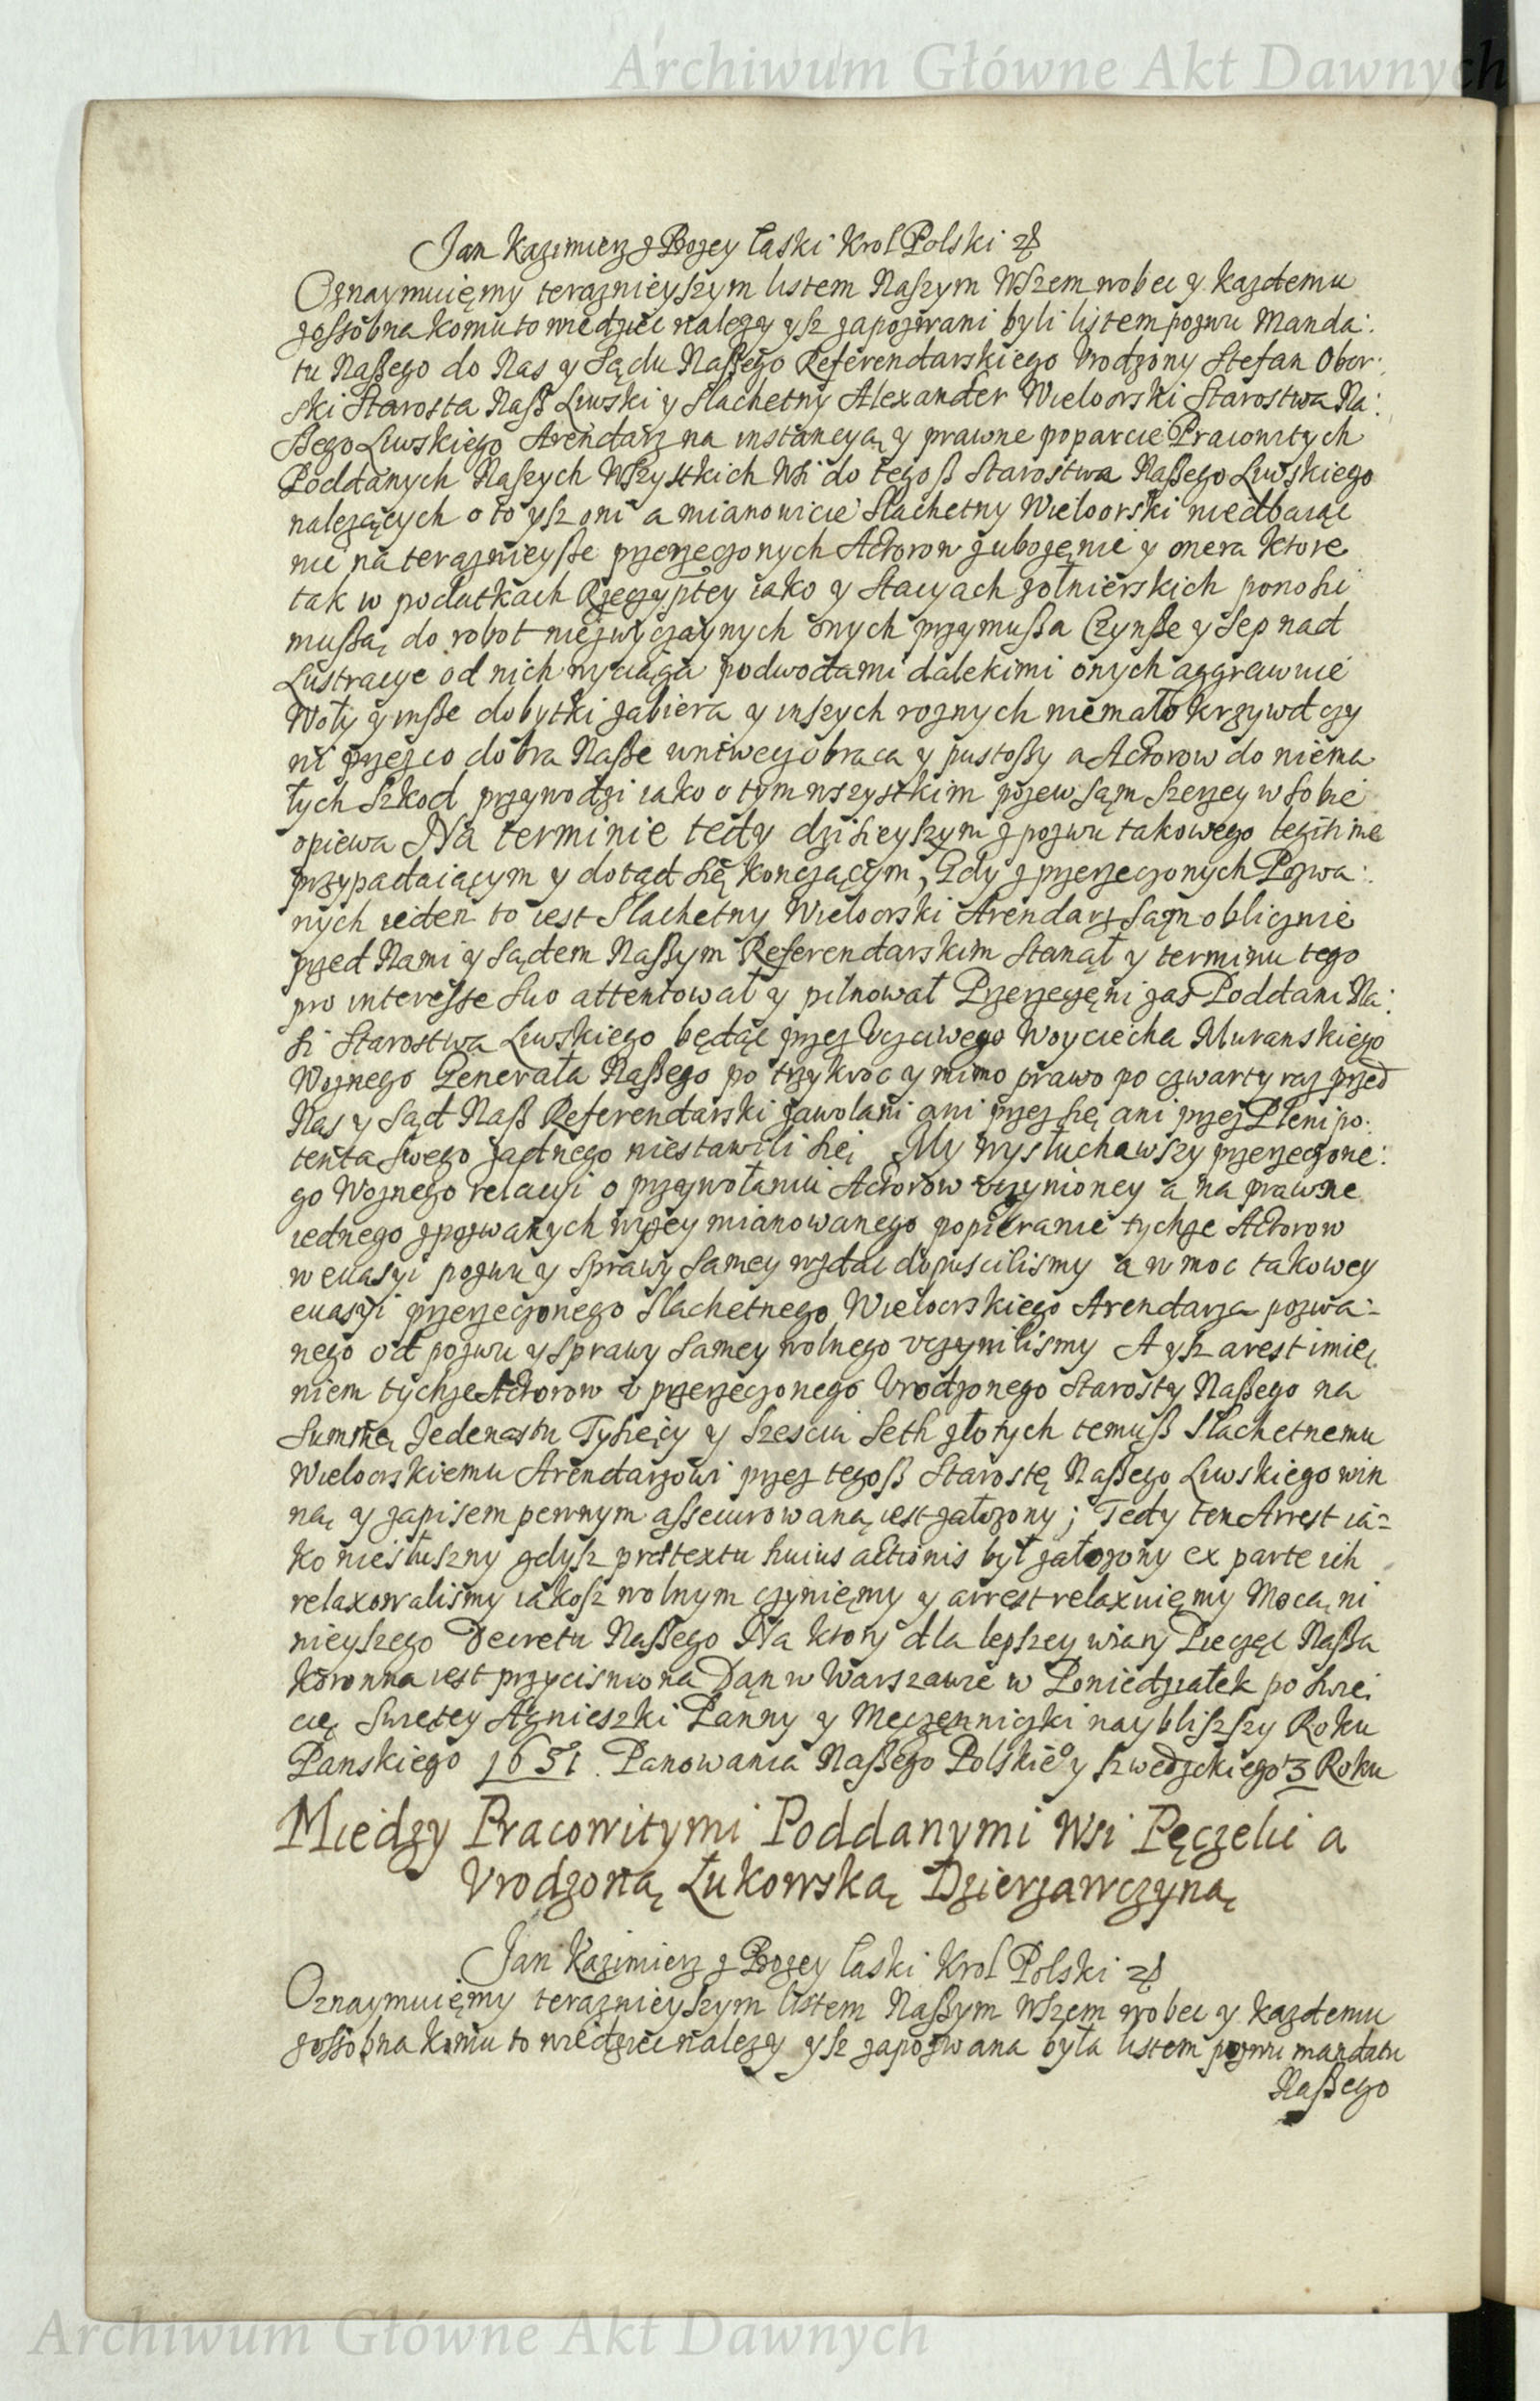 Archiwum Główne Akt Dawnych
Jan Kazimierz z Bozey łaski Krol Polski
Oznaymuięmy teraznieyszym listem Naszym Wszem wobec y kazdemu
zossobna komu to wiedziec nalezy ysz zapozwani byli listem pozwu Manda:
tu Naßego do Nas y Sądu Naßego Referendarskiego Vrodzony Stefan Obor:
ski Starosta Naß Liwski y Slachetny Alexander Wieloorski Starostwa Na:
ßego Liwskiego Arendarz na instancyą y prawne poparcie Pracowitych
Poddanych Naszych Wszystkich Wsi do tegoß Starostwa Naßego Liwskiego
nalezących o to ysz oni a mianowicie Slachetny Wieloorski niedbaiąc
nic na teraznieyße przerzeczonych Actorow zubozęnie y onera ktore
tak w podatkach Rzeczyptey iako y Stacyach zołnierskich ponosic
mußą do robot niezwyczaynych onych przymußa Czynße y Sep nad
Lustracye od nich wyciąga podwodami dalekimi onych aggrawuie
Woły y inße dobytki zabiera y inszych roznych niemało krzywd czy
ni przezco dobra Naße wniwecz obraca y pustoßy a Actorow do niema
łych Szkod przywodzi iako o tym wszystkim pozew sąm szerzey w sobie
opiewa Na terminie tedy dzisieyszym z pozwu takowego legitime
przypadaiącym y dotąd się konczącym, Gdy z przerzeczonych Pozwa:
nych ieden to iest Slachetny Wieloorski Arendarz sąm oblicznie
przed Nami y Sądem Naßym Referendarskim Stanął y terminu tego
pro interesse suo attentował y pilnował Przerzeczęni zas Poddani Na:
si Starostwa Liwskiego będąc przez Vczciwego Woyciecha Muranskiego
Woznego Generała Naßego po trzykroc y mimo prawo po czwarty raz przed
Nas y Sąd Naß Referendarski zawołani ani przez się ani przez Plenipo:
tenta swego zadnego niestawili się My wysłuchawszy przerzeczone:
go Woznego relacyi o przywołaniu Actorow vczynioney a na prawne
iednego z pozwanych wyzey mianowanego popieranie tychze Actorow
w euasyi pozwu y sprawy samey wzdac dopuscilismy a w moc takowey
euasyi przerzeczonego Slachetnego Wieloorskiego Arendarza pozwa:
nego od pozwu y sprawy samey wolnego vczynilismy A ysz arest imie
niem tychze Actorow v przerzeczonego Vrodzonego Starosty Naßego na
Summę Jedenastu Tysięcy y szesciu seth złotych temuß Slachetnemu
Wieloorskiemu Arendarzowi przez tegoß Starostę Naßego Liwskiego win
ną y zapisem pewnym assecurowaną iest załozony; Tedy ten Arrest ia:
ko niesłuszny gdysz prætextu huius actionis był załozony ex parte ich
relaxowalismy iakosz wolnym czyniemy y arrest relaxuięmy Mocą ni
nieyszego Decretu Naßego Na ktory dla lepszey wiary Pieczęc Naßa
Koronna iest przycisniona Dąn w Warszawie w Poniedziałek po swię
cie Swietey Agnieszki Panny y Męczenniczki naybliszszy Roku
Panskiego 1651. Panowania Naßego Polskieo y szwedzkiego 3 Roku
Miedzy Pracowitymi Poddanymi Wsi Pęczelic a
Vrodzoną Łukowską Dzierzawczyną
Jan Kazimierz z Bozey łaski Krol Polski
Oznaymuięmy teraznieyszym listem Naßym Wszem wobec y kazdemu
zossobna komu to wiedziec nalezy ysz zapozwana była listem pozwu mandatu
Naßego
Archiwum Główne Akt Dawnych